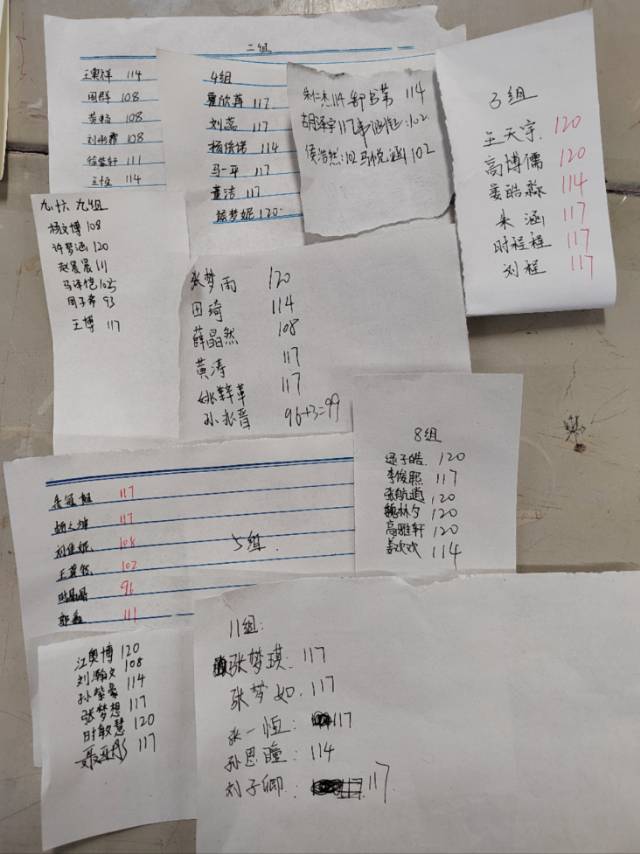 二组
王奥祥 114
周群 108
黄梅 108
108
111
114
4组
117
刘蕊 117
114
马一平 117
董洁 117
梦妮 120
朱仁杰 114 114
117 :102
侯浩然:102 马悦涵 102
3组
王天宇 120
高博儒 120
娄皓淼 114
朱涵 117
时程程 117
刘程 117
杨文博 108
许梦涵 120
赵晨晨 111
马泽恺 105
周子希 93
王博 117
张梦雨 120
田琦 114
薛晶然 108
黄涛 117
姚梓革 117
孙振晋 96+3=99
8组
子皓 120
李俊熙 117
张航逍 120
魏林夕 120
高雅轩 120
袁欢欢 114
5组
117
117
108
102
96
111
江奥博 120
刘瀚文 108
孙莹豪 114
张梦想 117
时敏慧 120
117
11组:
张梦琪: 117
张梦如: 117
张一恒: 117
孙思瞳: 114
刘子卿: 117